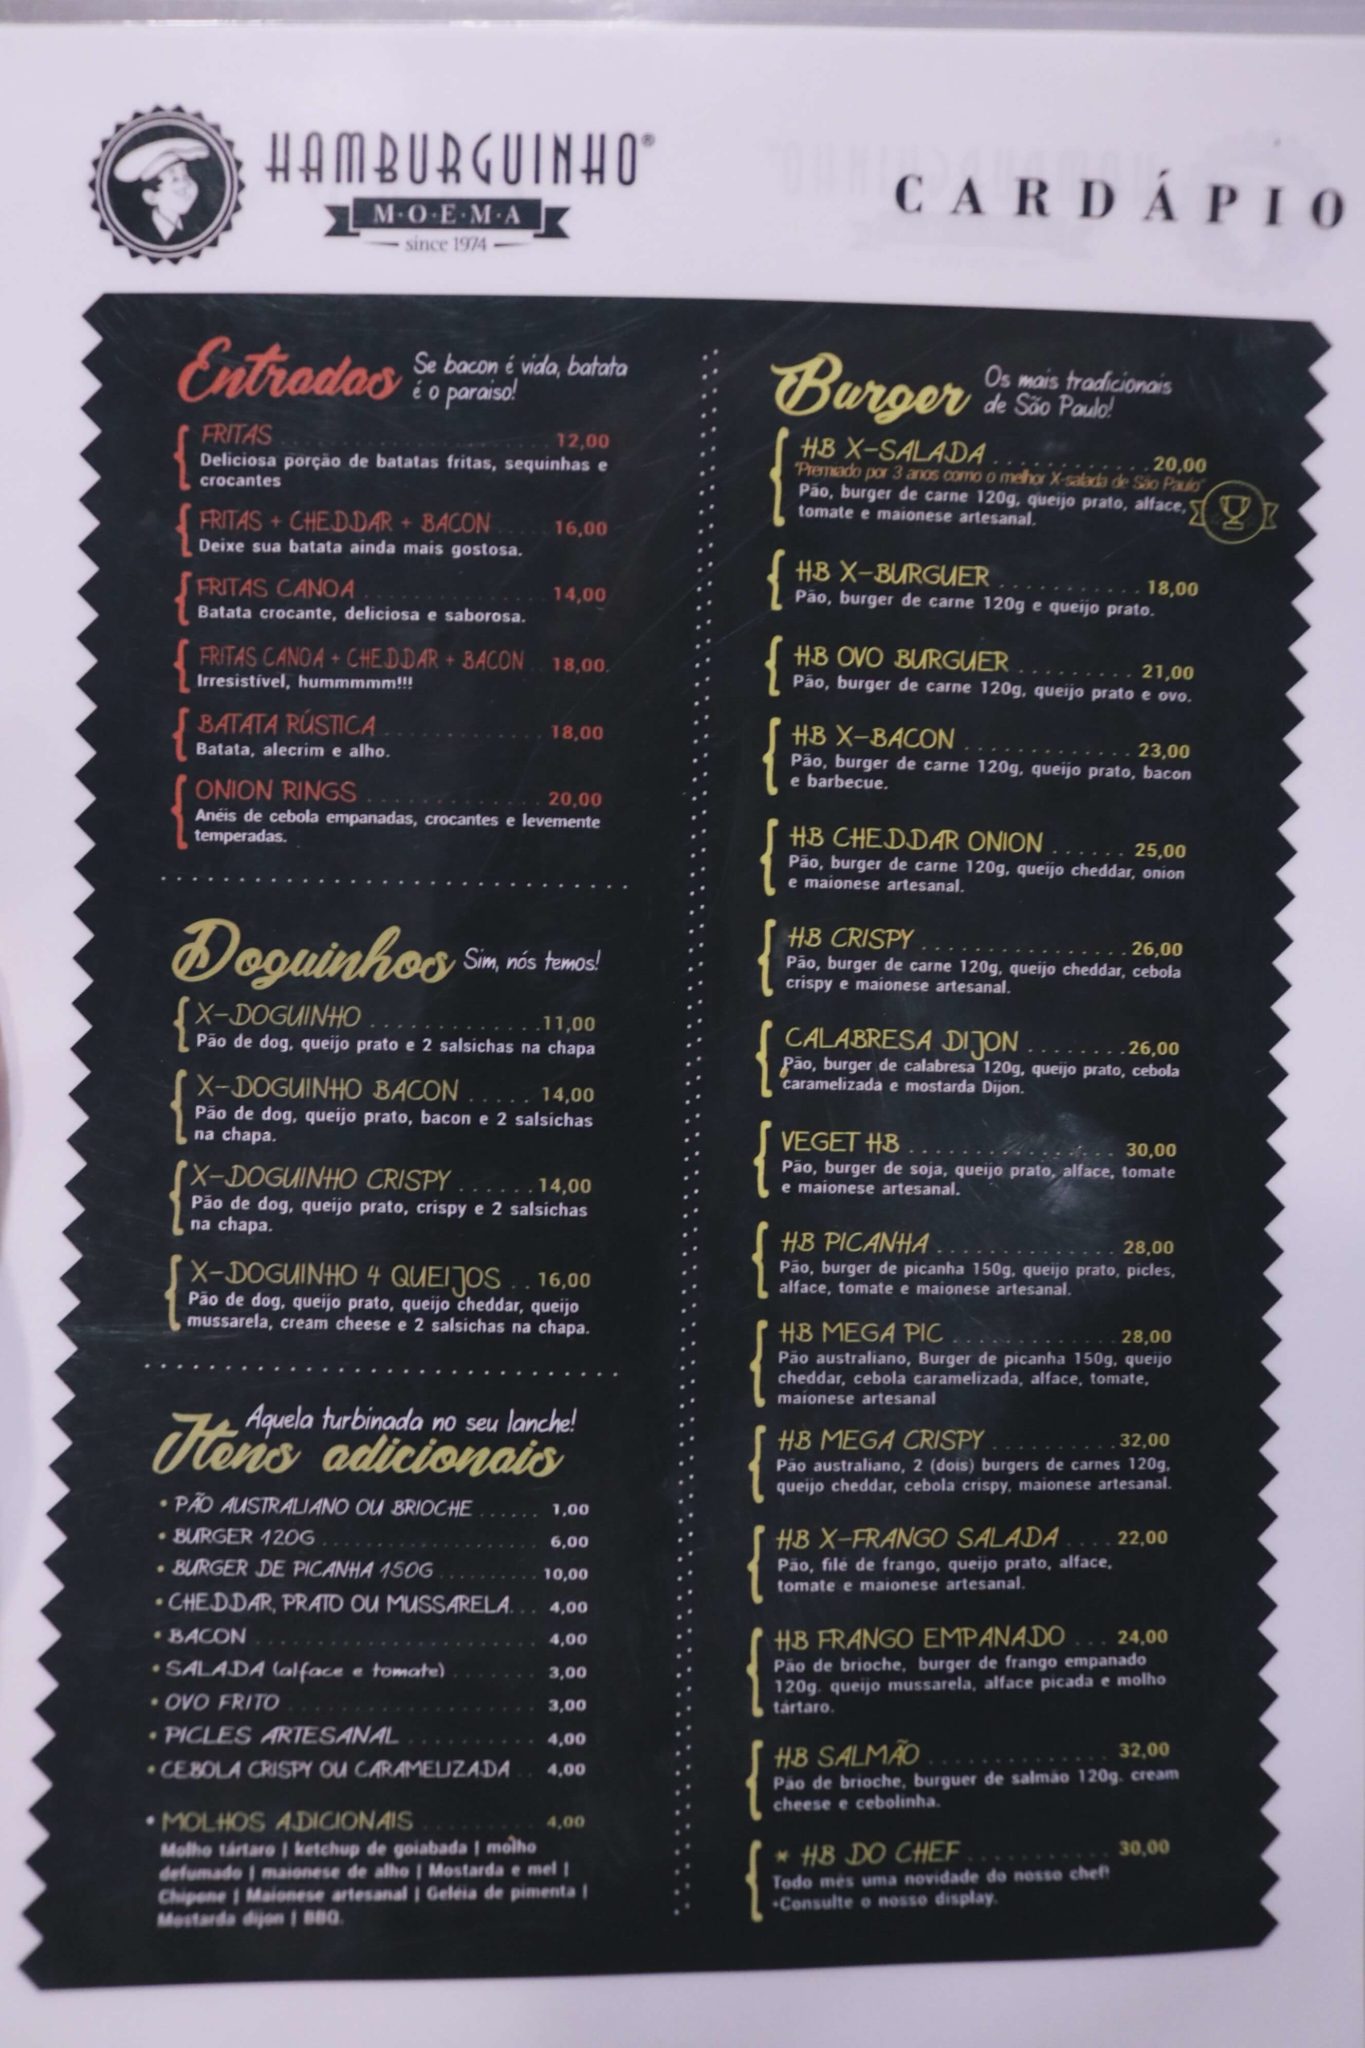 HAMBURGUINHO®
M·O·E·M·A
since 1974
CARDÁPIO
Entradas
Se bacon é vida, batata
é o paraiso!
FRITAS 12,00
Deliciosa porção de batatas fritas, sequinhas e
crocantes
FRITAS + CHEDDAR + BACON 16,00
Deixe sua batata ainda mais gostosa.
FRITAS CANOA 14,00
Batata crocante, deliciosa e saborosa.
FRITAS CANOA + CHEDDAR + BACON 18,00
Irresistível, hummmmm!!!
BATATA RÚSTICA 18,00
Batata, alecrim e alho.
ONION RINGS 20,00
Anéis de cebola empanadas, crocantes e levemente
temperadas.
Doguinhos
Sim, nós temos!
X-DOGUINHO 11,00
Pão de dog, queijo prato e 2 salsichas na chapa
X-DOGUINHO BACON 14,00
Pão de dog, queijo prato, bacon e 2 salsichas
na chapa.
X-DOGUINHO CRISPY 14,00
Pão de dog, queijo prato, crispy e 2 salsichas
na chapa.
X-DOGUINHO 4 QUEIJOS 16,00
Pão de dog, queijo prato, queijo cheddar, queijo
mussarela, cream cheese e 2 salsichas na chapa.
Aquela turbinada no seu lanche!
Itens adicionais
• PÃO AUSTRALIANO OU BRIOCHE 1,00
• BURGER 120G 6,00
• BURGER DE PICANHA 150G 10,00
• CHEDDAR, PRATO OU MUSSARELA 4,00
• BACON 4,00
• SALADA (alface e tomate) 3,00
• OVO FRITO 3,00
• PICLES ARTESANAL 4,00
• CEBOLA CRISPY OU CARAMELIZADA 4,00
• MOLHOS ADICIONAIS 4,00
Molho tártaro | ketchup de goiabada | molho
defumado | maionese de alho | Mostarda e mel |
Chipone | Maionese artesanal | Geléia de pimenta |
Mostarda dijon | BBQ.
Burger
Os mais tradicionais
de São Paulo!
HB X-SALADA 20,00
"Premiado por 3 anos como o melhor X-salada de São Paulo"
Pão, burger de carne 120g, queijo prato, alface,
tomate e maionese artesanal.
HB X-BURGUER 18,00
Pão, burger de carne 120g e queijo prato.
HB OVO BURGUER 21,00
Pão, burger de carne 120g, queijo prato e ovo.
HB X-BACON 23,00
Pão, burger de carne 120g, queijo prato, bacon
e barbecue.
HB CHEDDAR ONION 25,00
Pão, burger de carne 120g, queijo cheddar, onion
e maionese artesanal.
HB CRISPY 26,00
Pão, burger de carne 120g, queijo cheddar, cebola
crispy e maionese artesanal.
CALABRESA DIJON 26,00
Pão, burger de calabresa 120g, queijo prato, cebola
caramelizada e mostarda Dijon.
VEGET HB 30,00
Pão, burger de soja, queijo prato, alface, tomate
e maionese artesanal.
HB PICANHA 28,00
Pão, burger de picanha 150g, queijo prato, picles,
alface, tomate e maionese artesanal.
HB MEGA PIC 28,00
Pão australiano, Burger de picanha 150g, queijo
cheddar, cebola caramelizada, alface, tomate,
maionese artesanal
HB MEGA CRISPY 32,00
Pão australiano, 2 (dois) burgers de carnes 120g,
queijo cheddar, cebola crispy, maionese artesanal.
HB X-FRANGO SALADA 22,00
Pão, filé de frango, queijo prato, alface,
tomate e maionese artesanal.
HB FRANGO EMPANADO 24,00
Pão de brioche, burger de frango empanado
120g. queijo mussarela, alface picada e molho
tártaro.
HB SALMÃO 32,00
Pão de brioche, burguer de salmão 120g. cream
cheese e cebolinha.
* HB DO CHEF 30,00
Todo mês uma novidade do nosso chef!
*Consulte o nosso display.